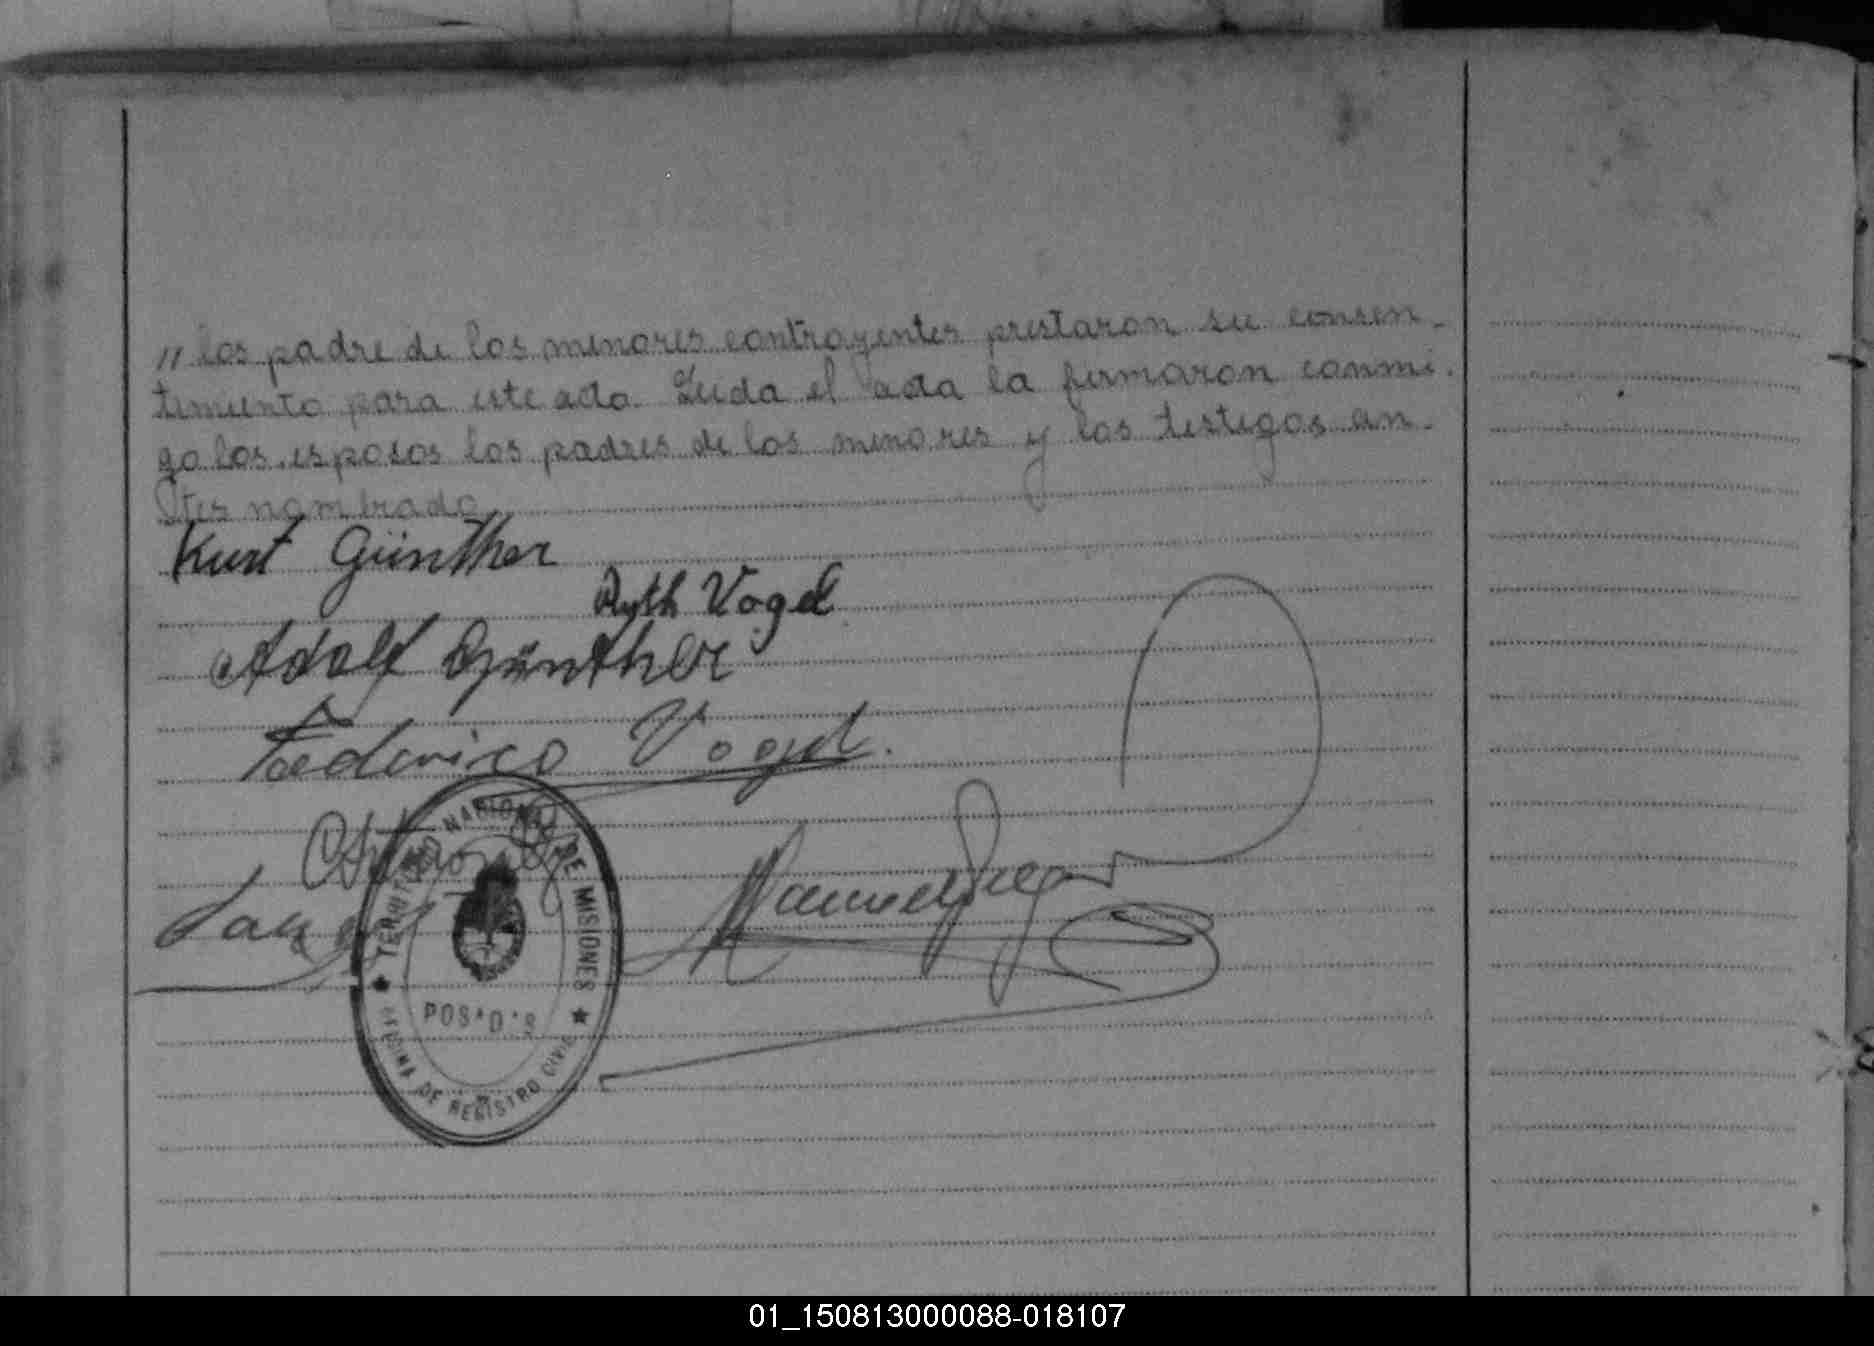 „ los padre de los menores contrayentes prestaron su consen-
timiento para este acto. Leida el acta la firmaron conmi-
go los esposos los padres de los menores y los testigos an-
tes nombrado
Kurt Günther
Ruth Vogel
Adolf Günther
Federico Vogel.
TERRITORIO NACIONAL DE MISIONES
POSADAS
OFICINA DE REGISTRO CIVIL
01_150813000088-018107